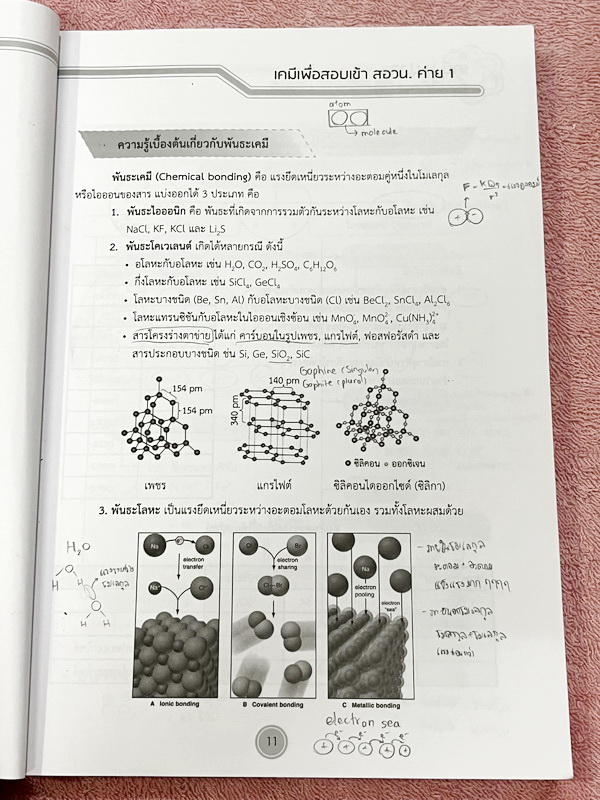 เคมีเพื่อสอบเข้า สอวน. ค่าย 1
atom
molecule
ความรู้เบื้องต้นเกี่ยวกับพันธะเคมี
พันธะเคมี (Chemical bonding) คือ แรงยึดเหนี่ยวระหว่างอะตอมคู่หนึ่งในโมเลกุล
หรือไอออนของสาร แบ่งออกได้ 3 ประเภท คือ
1. พันธะไอออนิก คือ พันธะที่เกิดจากการรวมตัวกันระหว่างโลหะกับอโลหะ เช่น
NaCl, KF, KCl และ Li₂S
2. พันธะโคเวเลนต์ เกิดได้หลายกรณี ดังนี้
• อโลหะกับอโลหะ เช่น H₂O, CO₂, H₂SO₄, C₆H₁₂O₆
• กึ่งโลหะกับอโลหะ เช่น SiCl₄, GeCl₄
• โลหะบางชนิด (Be, Sn, Al) กับอโลหะบางชนิด (Cl) เช่น BeCl₂, SnCl₄, Al₂Cl₆
• โลหะแทรนซิชันกับอโลหะในไอออนเชิงซ้อน เช่น MnO₄⁻, MnO₄²⁻, Cu(NH₃)₄²⁺
• สารโครงร่างตาข่าย ได้แก่ คาร์บอนในรูปเพชร, แกรไฟต์, ฟอสฟอรัสดำ และ
สารประกอบบางชนิด ช่น Si, Ge, SiO₂, SiC
Gaphine (Singular)
Gaphite (plural)
154 pm
154 pm
140 pm
340 pm
ซิลิคอน ออกซิเจน
เพชร
แกรไฟต์
ซิลิคอนไดออกไซด์ (ซิลิกา)
3. พันธะโลหะ เป็นแรงยึดเหนี่ยวระหว่างอะตอมโลหะด้วยกันเอง รวมทั้งโลหะผสมด้วย
H₂O
O
H H
O
H H
Na e⁻ Cl
electron
transfer
Na⁺ Cl⁻
A Ionic bonding
Cl Br
electron
sharing
Cl Br
B Covalent bonding
Na
electron
pooling
electron
"sea"
C Metallic bonding
electron sea
e⁻ e⁻ e⁻ e⁻
11